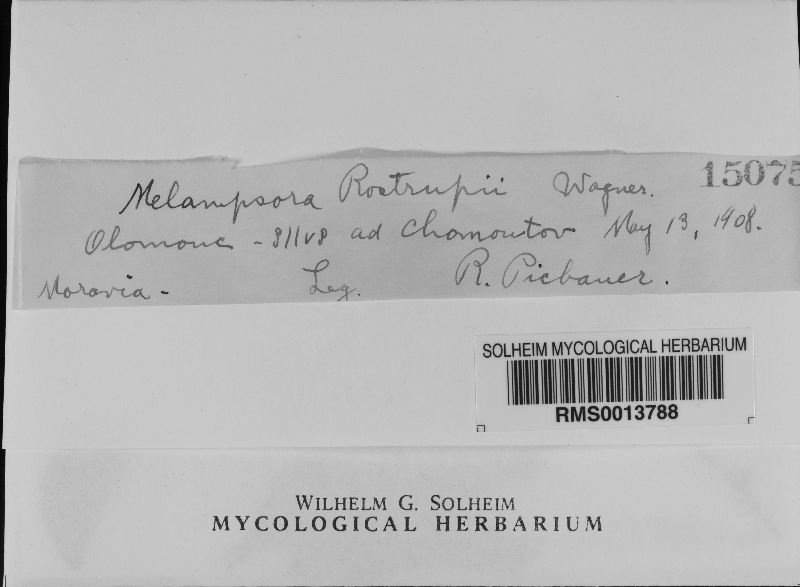 15075
Melampsora Rostrupii Wagner.
Olomouc - ad Chomoutov May 13, 1908.
Moravia - Leg. R. Picbauer.
SOLHEIM MYCOLOGICAL HERBARIUM
RMS0013788
WILHELM G. SOLHEIM
MYCOLOGICAL HERBARIUM